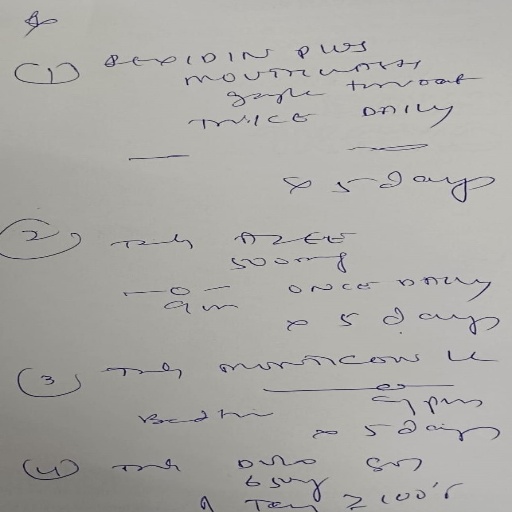 (1) REXIDIN PLUS
MOUTHWASH
gargle throat
TWICE DAILY
x 5 days
(2) Tab AZEE
500mg
ONCE DAILY
x 5 days
(3) Tab MONTICOPE
9 pm
Bedtime
x 5 days
(4) Tab DOLO
650mg
≥ 100°F